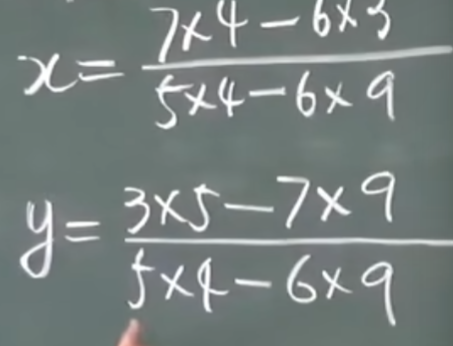 x = \frac{7×4-6×3}{5×4-6×9}
y = \frac{3×5-7×9}{5×4-6×9}